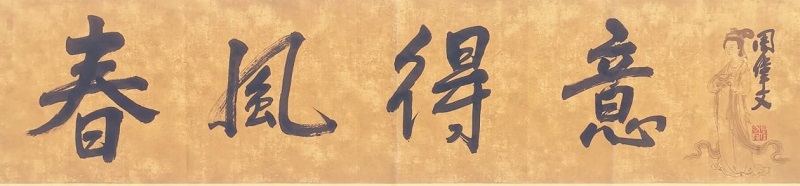 春風得意
周偉文